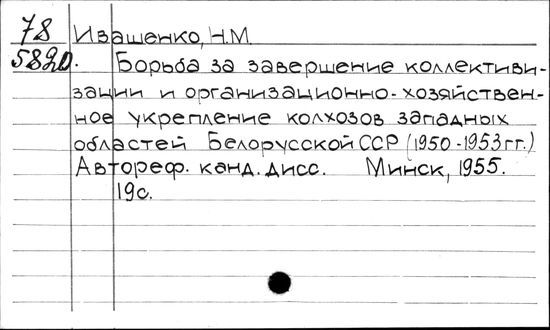 78 Иващенко, Н.М.
5820. Борьба за завершение коллективи-
зации и организационно-хозяйствен-
ное укрепление колхозов западных
областей Белорусской ССР (1950-1953 гг.)
Автореф. канд. дисс. Минск, 1955.
19с.